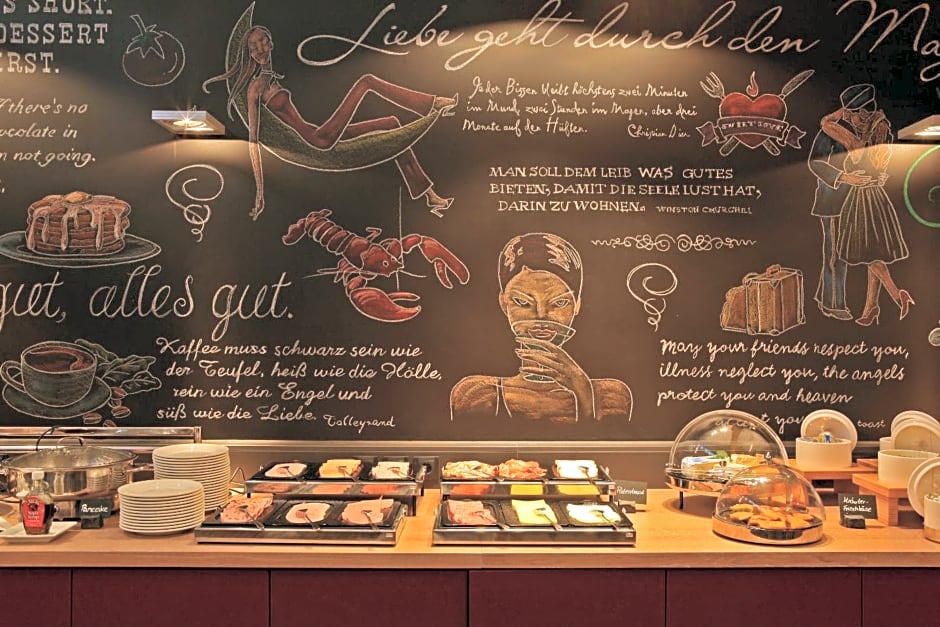 S SHORT.
DESSERT
RST.
Liebe geht durch den Mag
there's no
ocolate in
not going.
Jeder Bissen bleibt höchstens zwei Minuten
im Mund, zwei Stunden im Magen, aber drei
Monate auf den Hüften.
Christian Dior
SWEET LOVE
MAN SOLL DEM LEIB WAS GUTES
BIETEN, DAMIT DIE SEELE LUST HAT,
DARIN ZU WOHNEN. WINSTON CHURCHILL
gut, alles gut.
Kaffee muss schwarz sein wie
der Teufel, heiß wie die Hölle,
rein wie ein Engel und
süß wie die Liebe. Talleyrand
May your friends respect you,
illness neglect you, the angels
protect you and heaven
accept you toast
Pancake
Kräuter-
Frischkäse